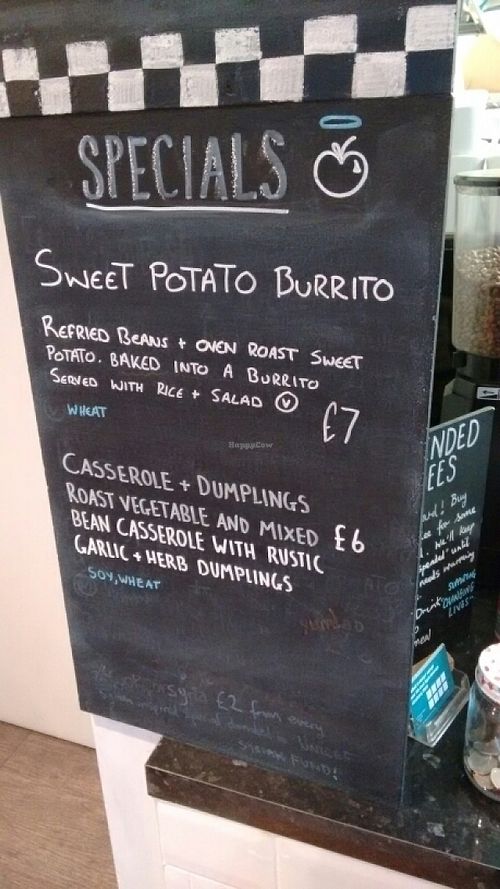 SPECIALS
SWEET POTATO BURRITO
REFRIED BEANS + OVEN ROAST SWEET
POTATO. BAKED INTO A BURRITO
SERVED WITH RICE + SALAD Ⓥ
£7
WHEAT
HappyCow
CASSEROLE + DUMPLINGS
ROAST VEGETABLE AND MIXED £6
BEAN CASSEROLE WITH RUSTIC
GARLIC + HERB DUMPLINGS
SOY, WHEAT
£2 from every
UNICEF
SYRIAN FUND!
NDED
EES
Buy
ee for some
We'll keep
until
needs warming
Drink
SUMMING
CHANGING
LIVES"
meal